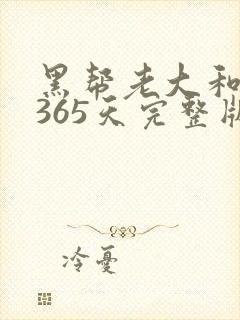 黑帮老大和
365天完整版
冷憂